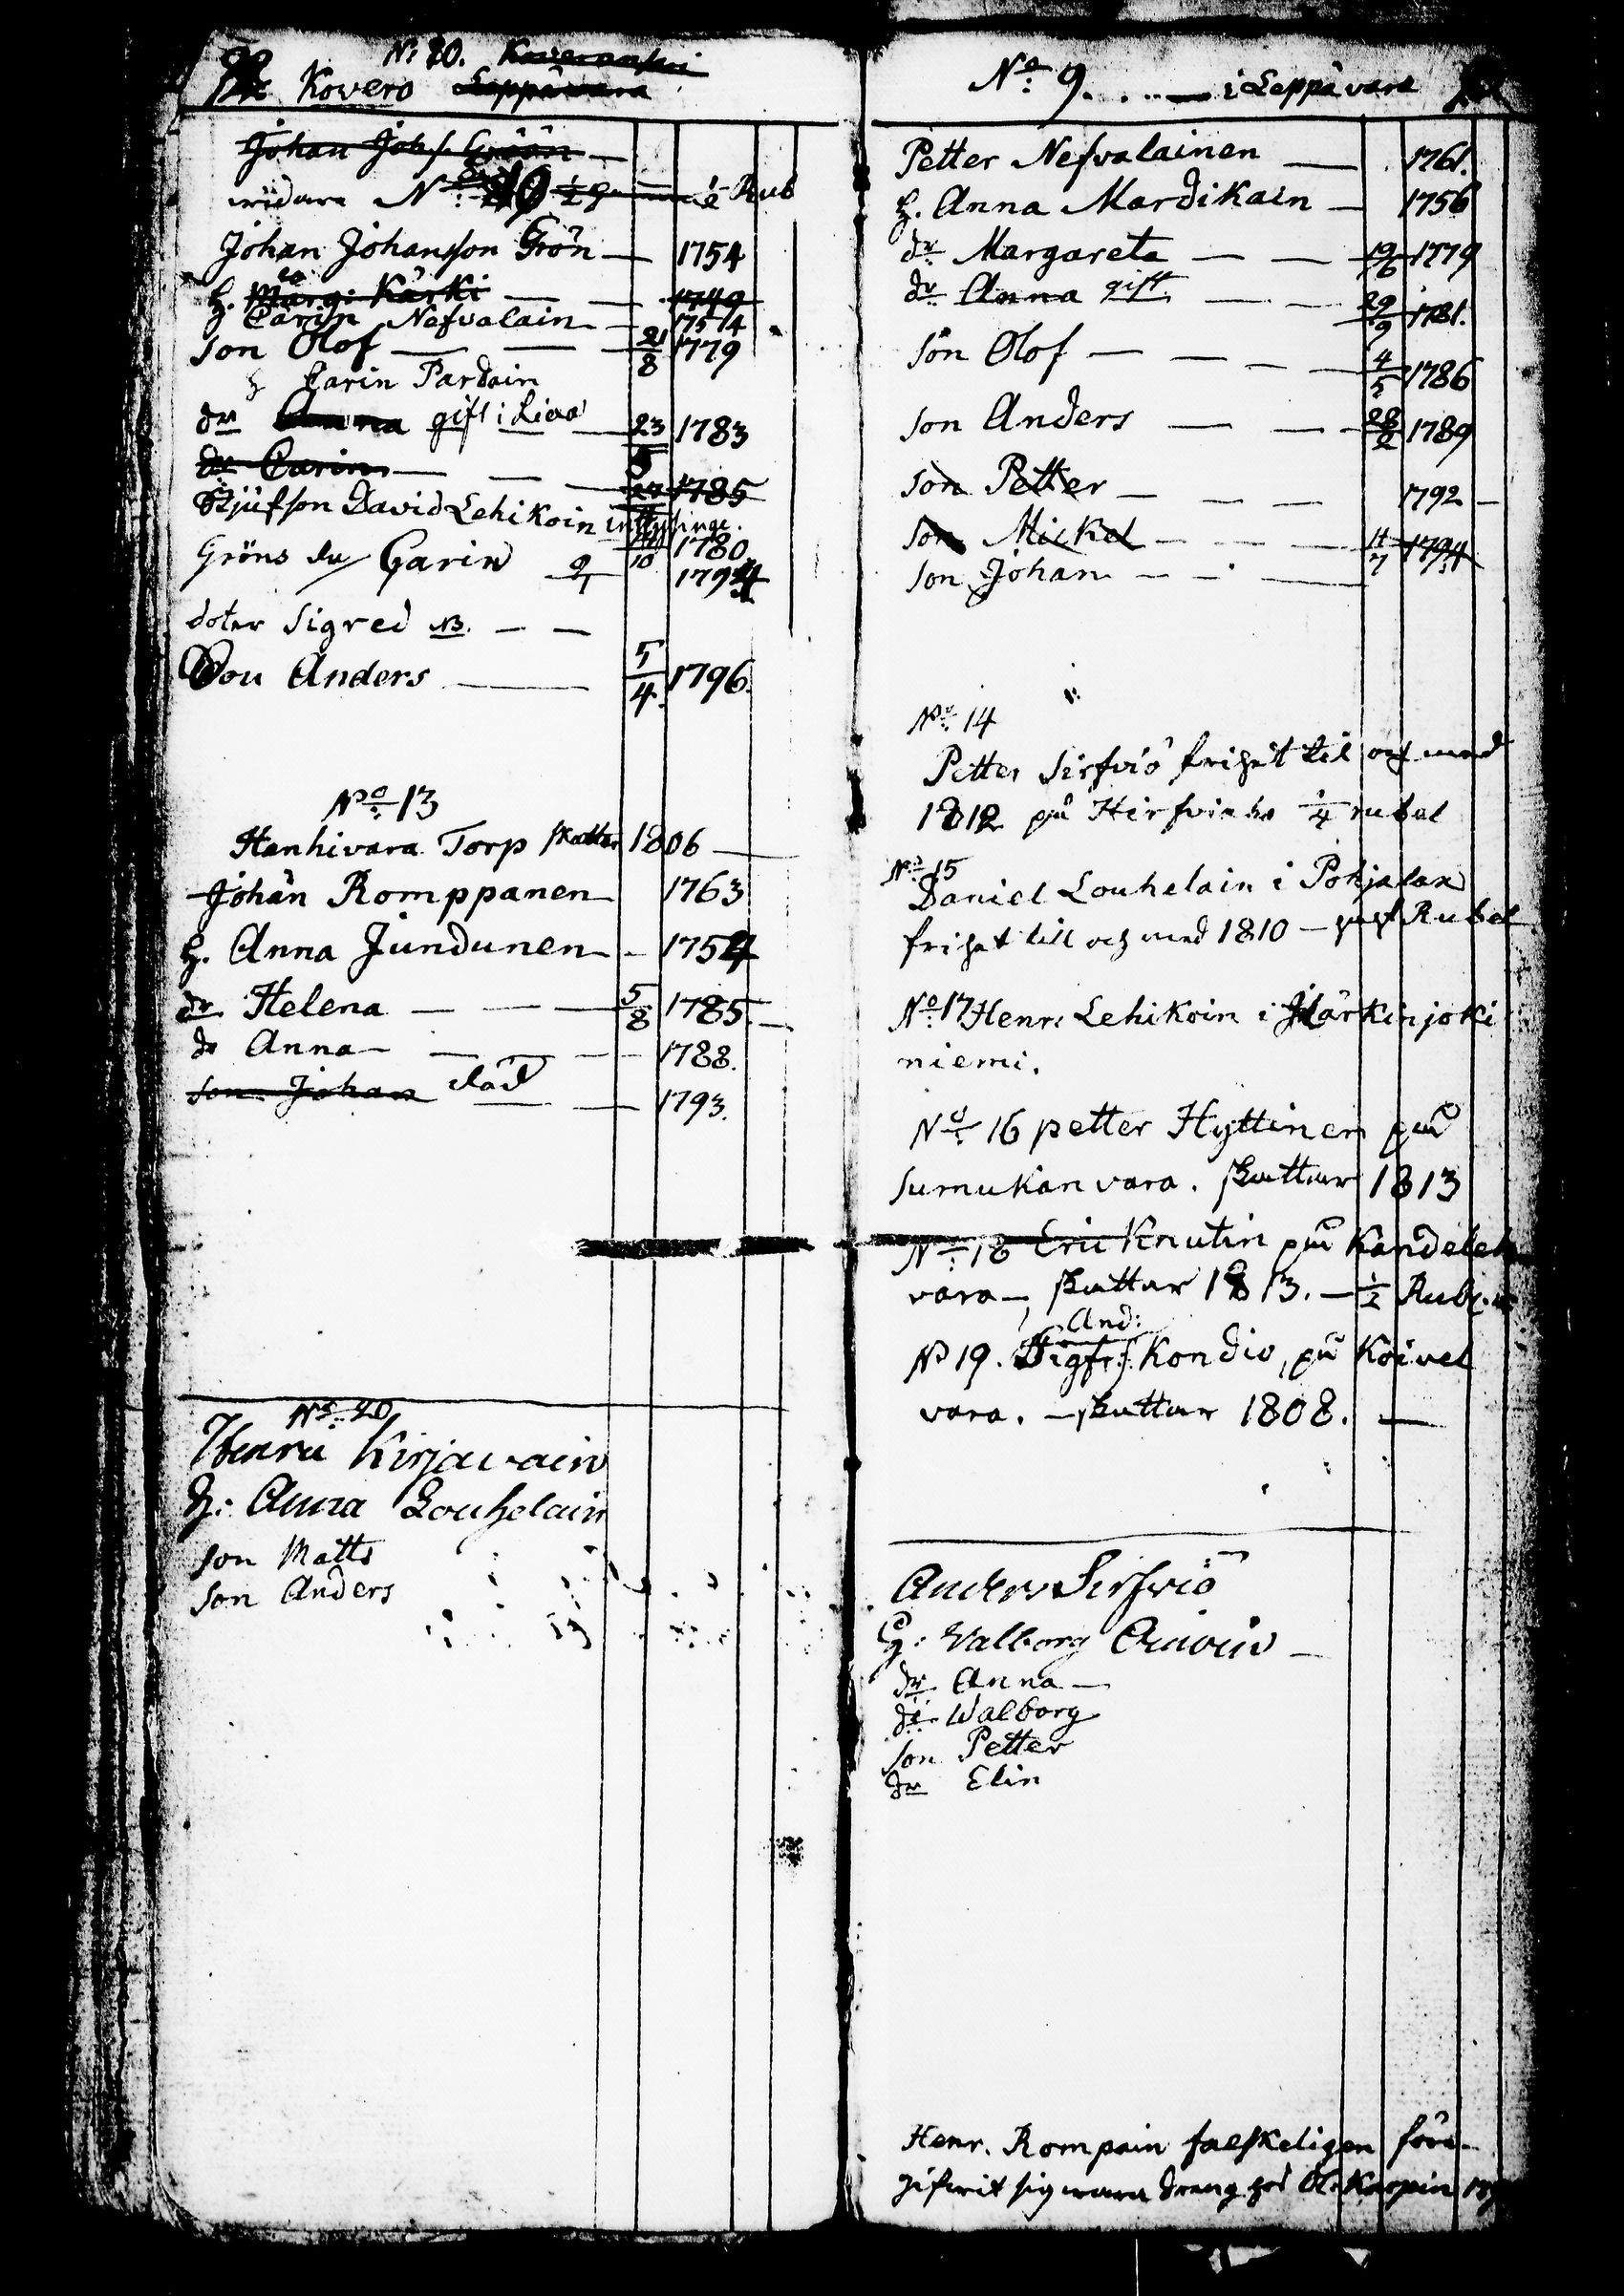 No 20. Koveronsaari
Kovero Leppävara
Johan Johs Gröön
N:o
1/2 Rub
Johan Johansson Grön 1754
h. Marg: Kärki 1749
h Carin Nefvalain 1754
son Olof 21/8 1779
h Carin Pardain
dr Anna gift i Liва 23/5 1783
dr Carin 1785
Stjufson David Lehikoin
10 1780
Gröns dr Carin 9/1 1794
doter Sigred NB.
Son Anders 5/4 1796.
No 13
Hanhivara Torp skattar 1806
Johan Romppanen 1763
h. Anna Jundunen 1754
dr Helena 5/8 1785.
dr Anna 1788.
son Johan död 1793.
No 20
Henric Kirjavain
h: Anna Louhelain
son Matts
son Anders
No 9. i Leppävara
Petter Nefvalainen 1761.
h. Anna Mardikain 1756
dr Margareta 19/6 1779
dr Anna gift 29/9 1781.
son Olof 4/5 1786
son Anders 28/2 1789
son Petter 1792
son Mickel 11/7 1794
son Johan
No 14
Petter Sirfviö frihet til och med
1812 på 1/4 rubel
No 15
Daniel Louhelain i Pohjalax
frihet till och med 1810 Rubel
No 17 Henr. Lehikoin i Härkinjoki
niemi.
No 16 petter Hyttinen på
sumukanvara. skattar 1813
No 18 Eric Knutin på Kandelen
vara skattar 1813. 1/2 Rubl.
And:
No 19. Sigfr: Kondio, på Koivel
vara. skattar 1808.
Anders Sirfviö
h: Valborg
dr Anna
dr Walborg
son Petter
dr Elin
Henr. Rompain falskeligen före-
gifvit sig vara dreng hos Ol: Karpin